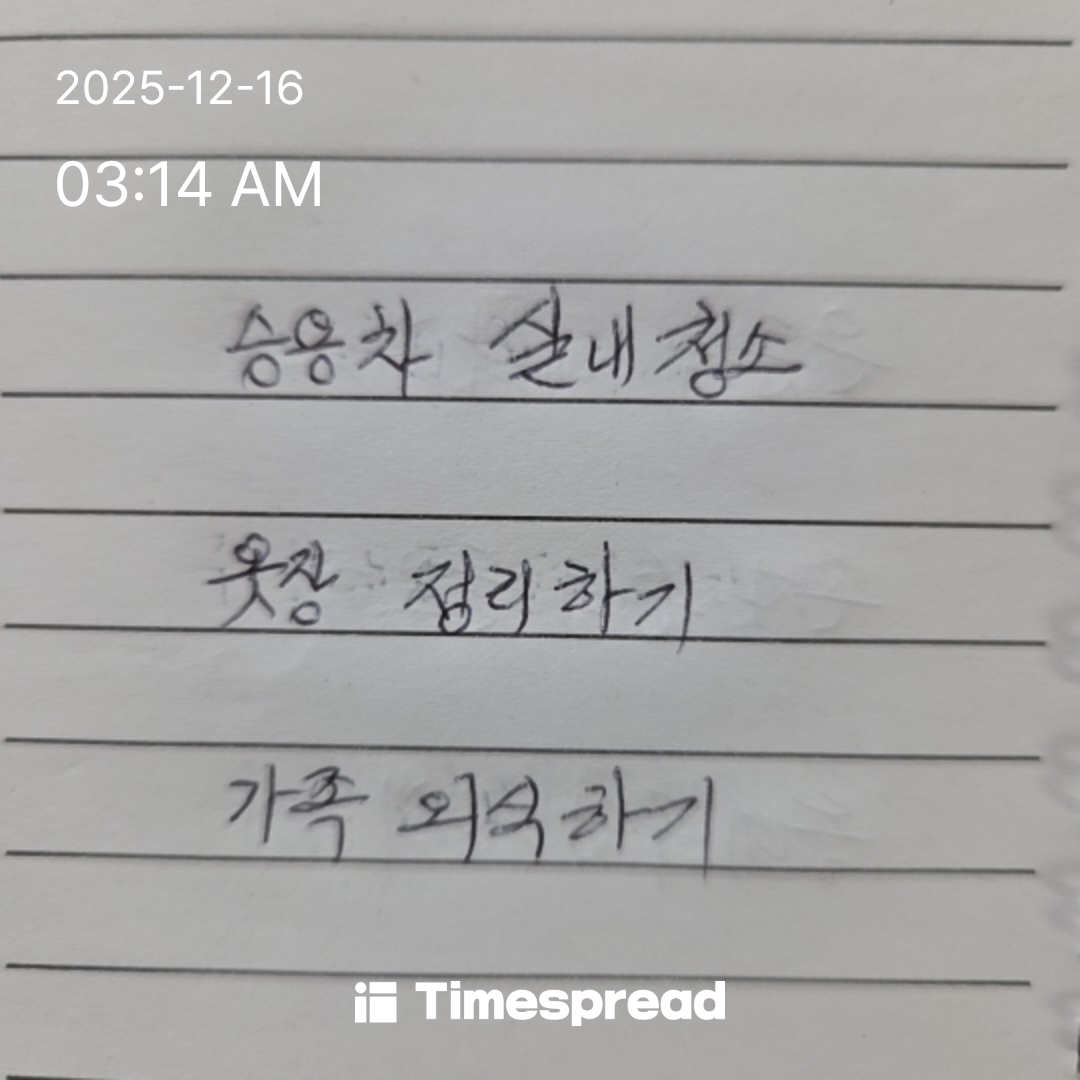 2025-12-16
03:14 AM
승용차 실내청소
옷장 정리하기
가족 외식하기
Timespread